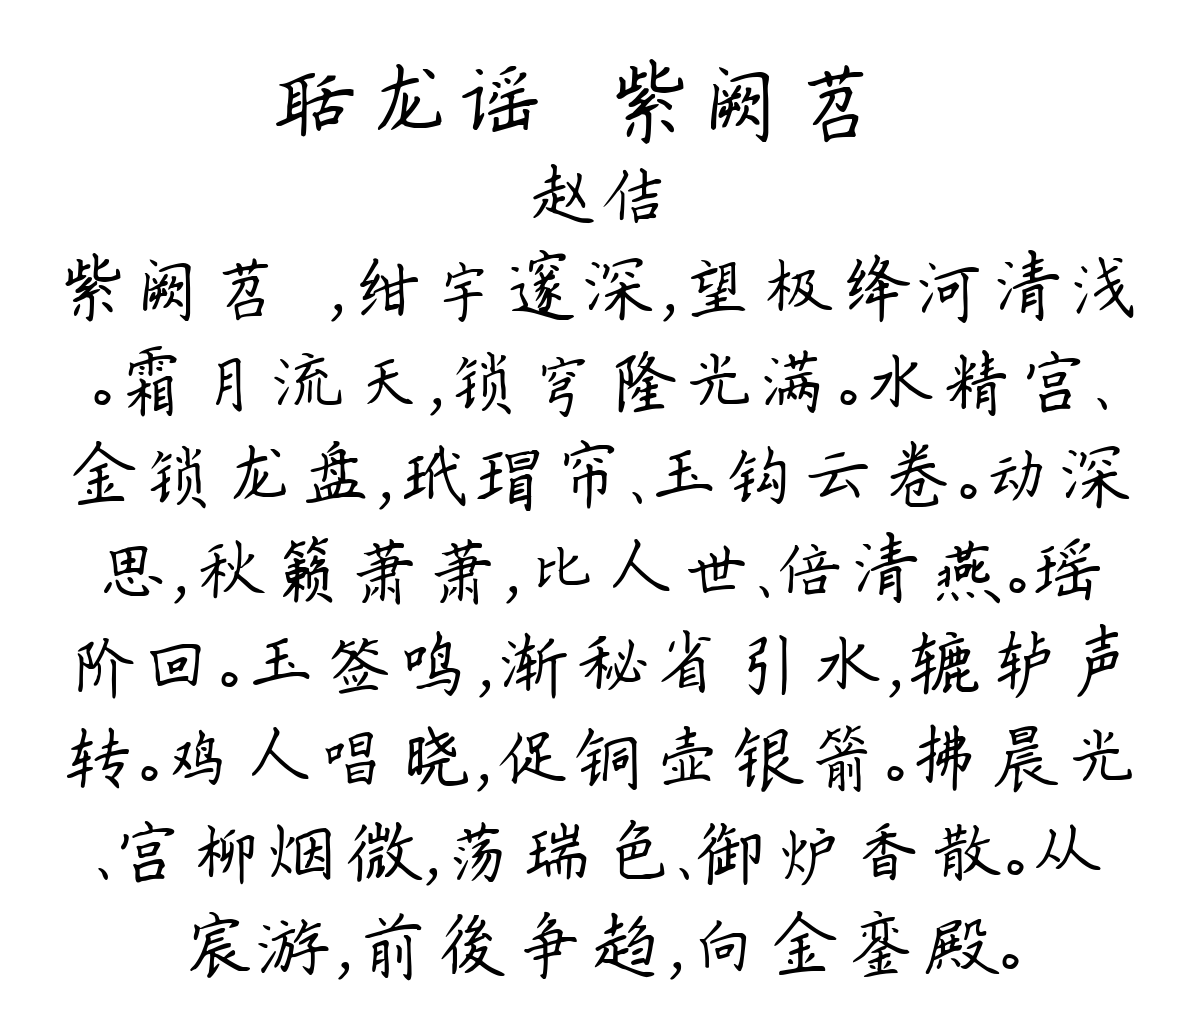 聒龙谣 紫阙苕
赵佶
紫阙苕 ,绀宇邃深,望极绛河清浅
。霜月流天,锁穹隆光满。水精宫、
金锁龙盘,玳瑁帘、玉钩云卷。动深
思,秋籁萧萧,比人世、倍清燕。瑶
阶回。玉签鸣,渐秘省引水,辘轳声
转。鸡人唱晓,促铜壶银箭。拂晨光
、宫柳烟微,荡瑞色、御炉香散。从
宸游,前後争趋,向金銮殿。